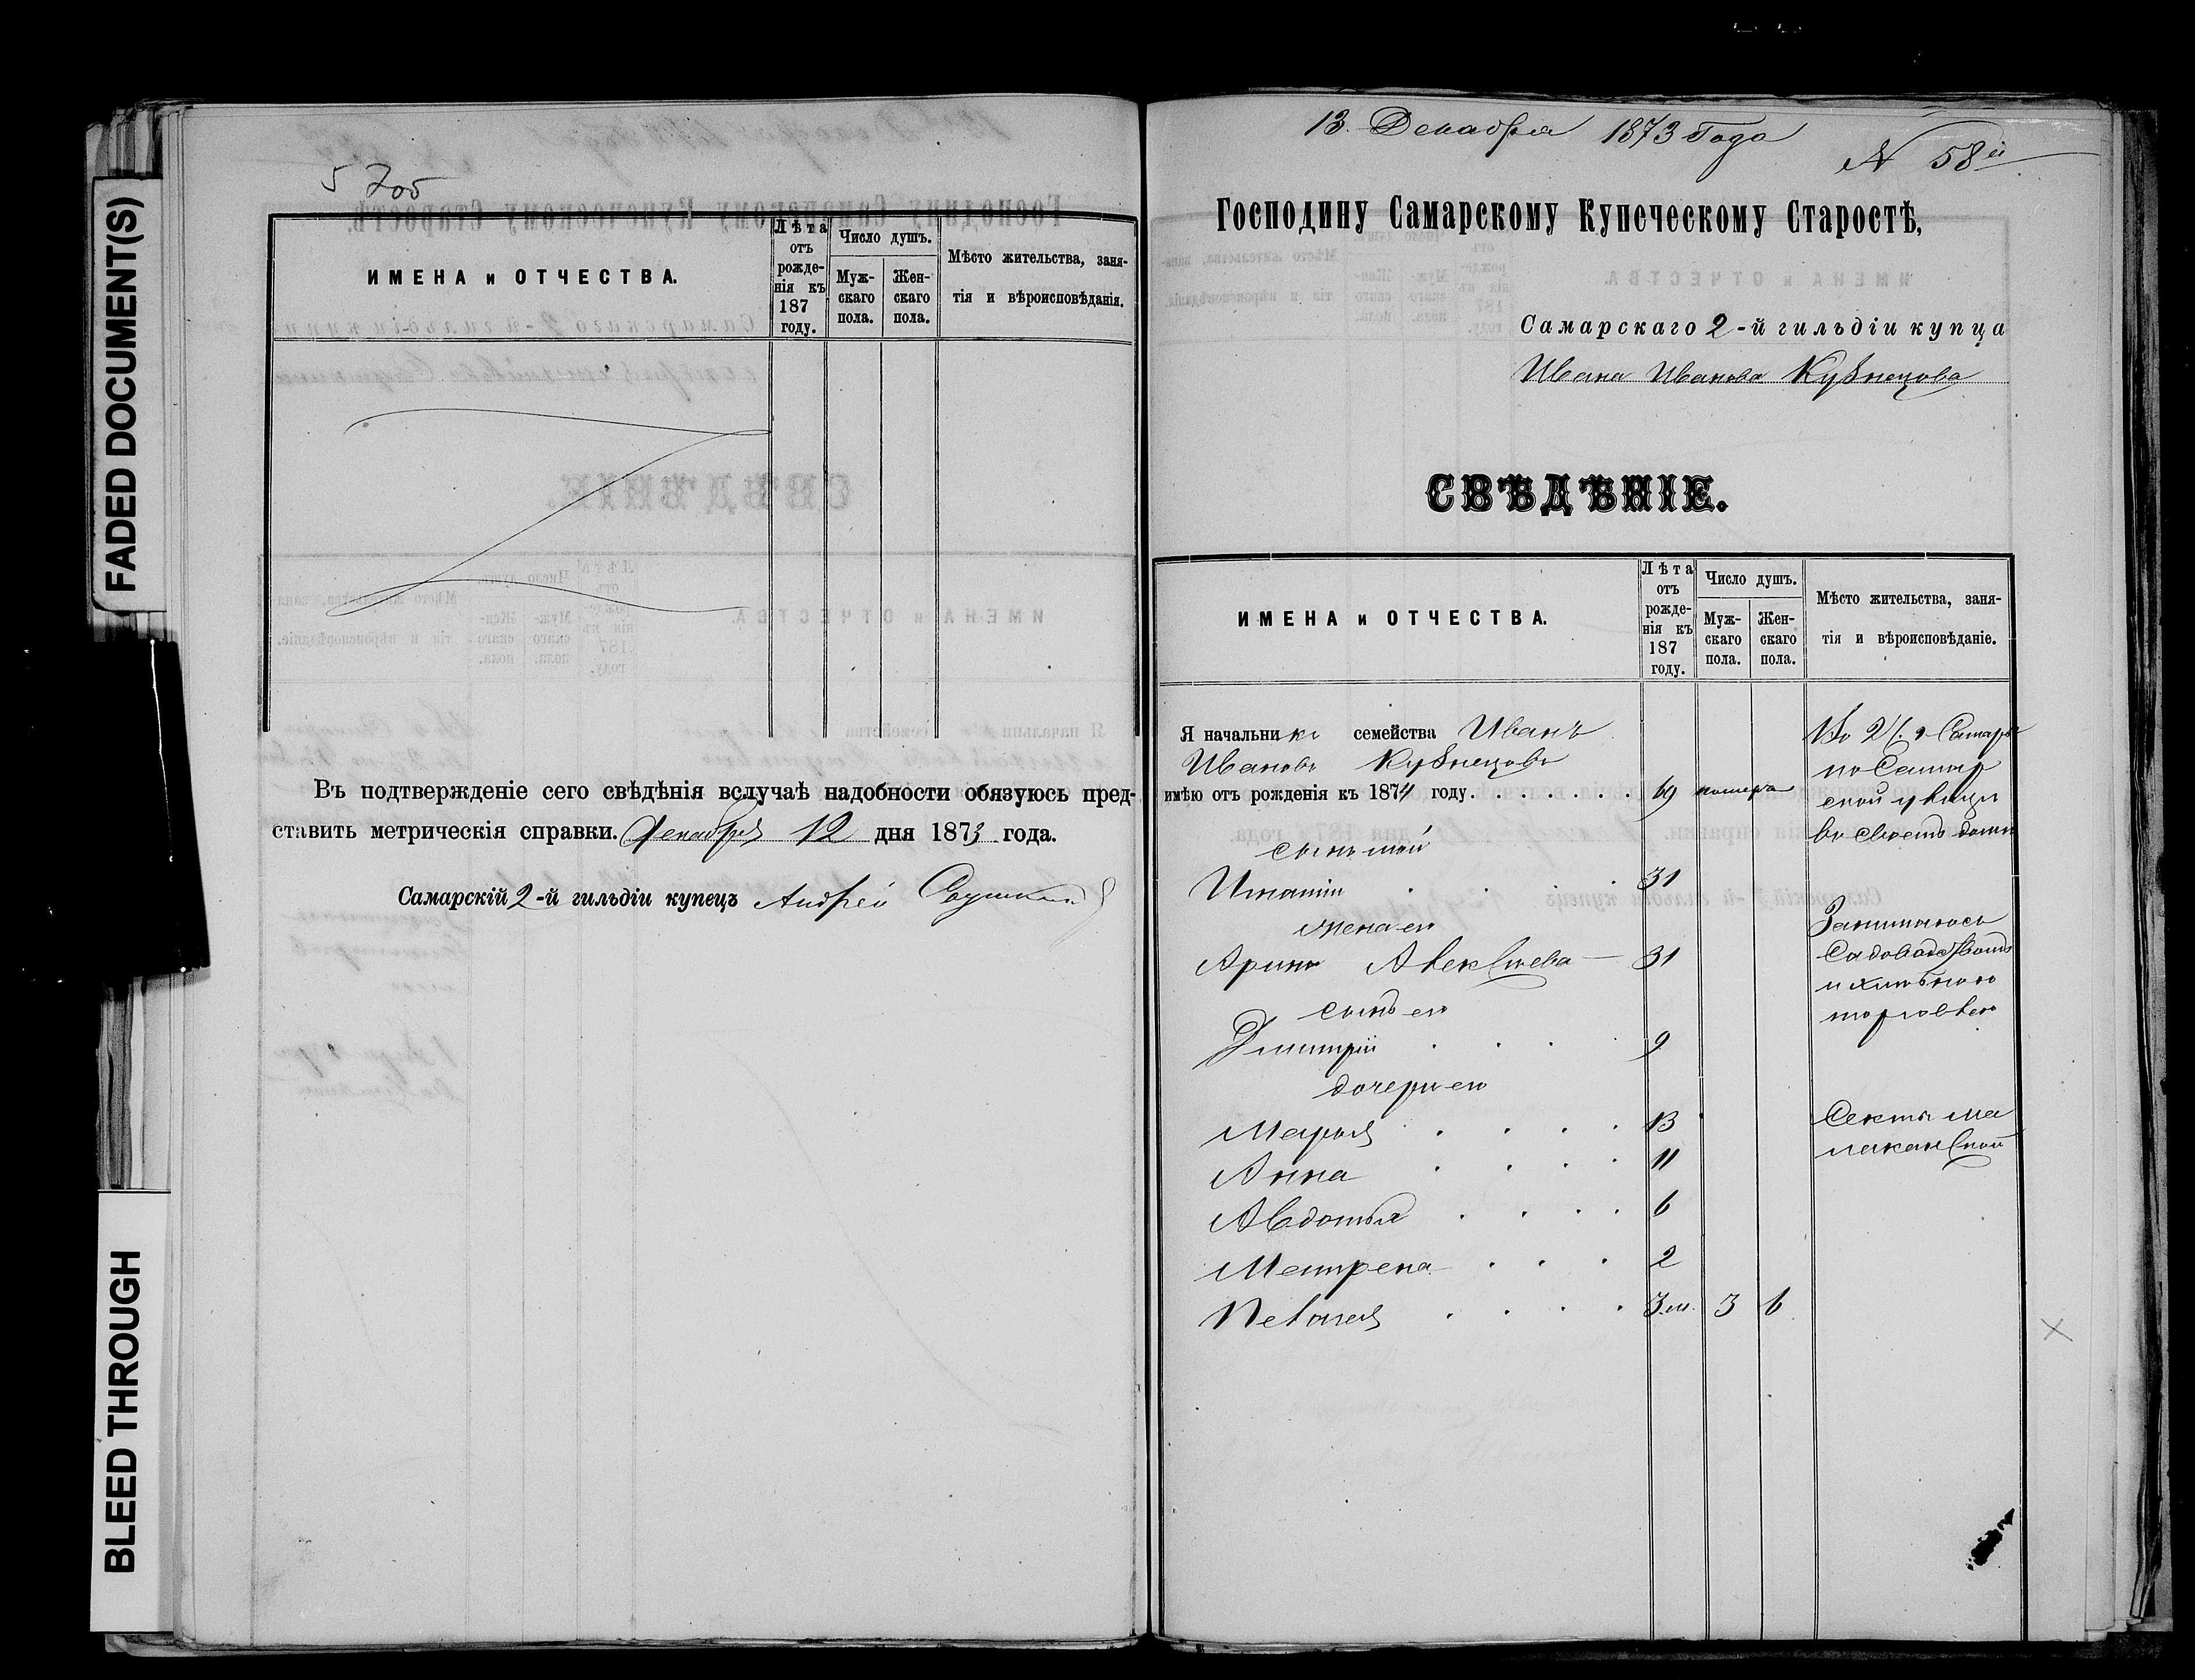 FADED DOCUMENT(S)
BLEED THROUGH
57об
ИМЕНА и ОТЧЕСТВА.
Лѣта отъ рожденія къ 187 году.
Число душъ.
Мужскаго пола.
Женскаго пола.
Мѣсто жительства, занятія и вѣроисповѣданія.
Въ подтвержденіе сего свѣдѣнія вслучаѣ надобности обязуюсь пред-
ставить метрическія справки. Декабря 12 дня 1873 года.
Самарскій 2-й гильдіи купецъ Андрей
13. Декабря 1873 Года
N 58й
Господину Самарскому Купеческому Старостѣ,
Самарскаго 2-й гильдіи купца
Ивана Иванова Кузнецова
СВѢДѢНІЕ.
ИМЕНА и ОТЧЕСТВА.
Лѣта отъ рожденія къ 187 году.
Число душъ.
Мужскаго пола.
Женскаго пола.
Мѣсто жительства, занятія и вѣроисповѣданіе.
Я начальникъ семейства Иванъ
Ивановъ Кузнецовъ
имѣю отъ рожденія къ 1874 году. 69
сынъ мой
Игнатій 31
жена его
Арина Алексѣева 31
сынъ его
Дмитрій 9
дочери его
Марья 13
Анна 11
Авдотья 6
Матрена 2
Пелагея 3 м. 3 6
Во 2 ч. г. Самары
по Самар
ской улицы
въ своемъ доми
Занимаюсь
Садоводствомъ
и хлебною
торговлею
Секты ма
лаканской